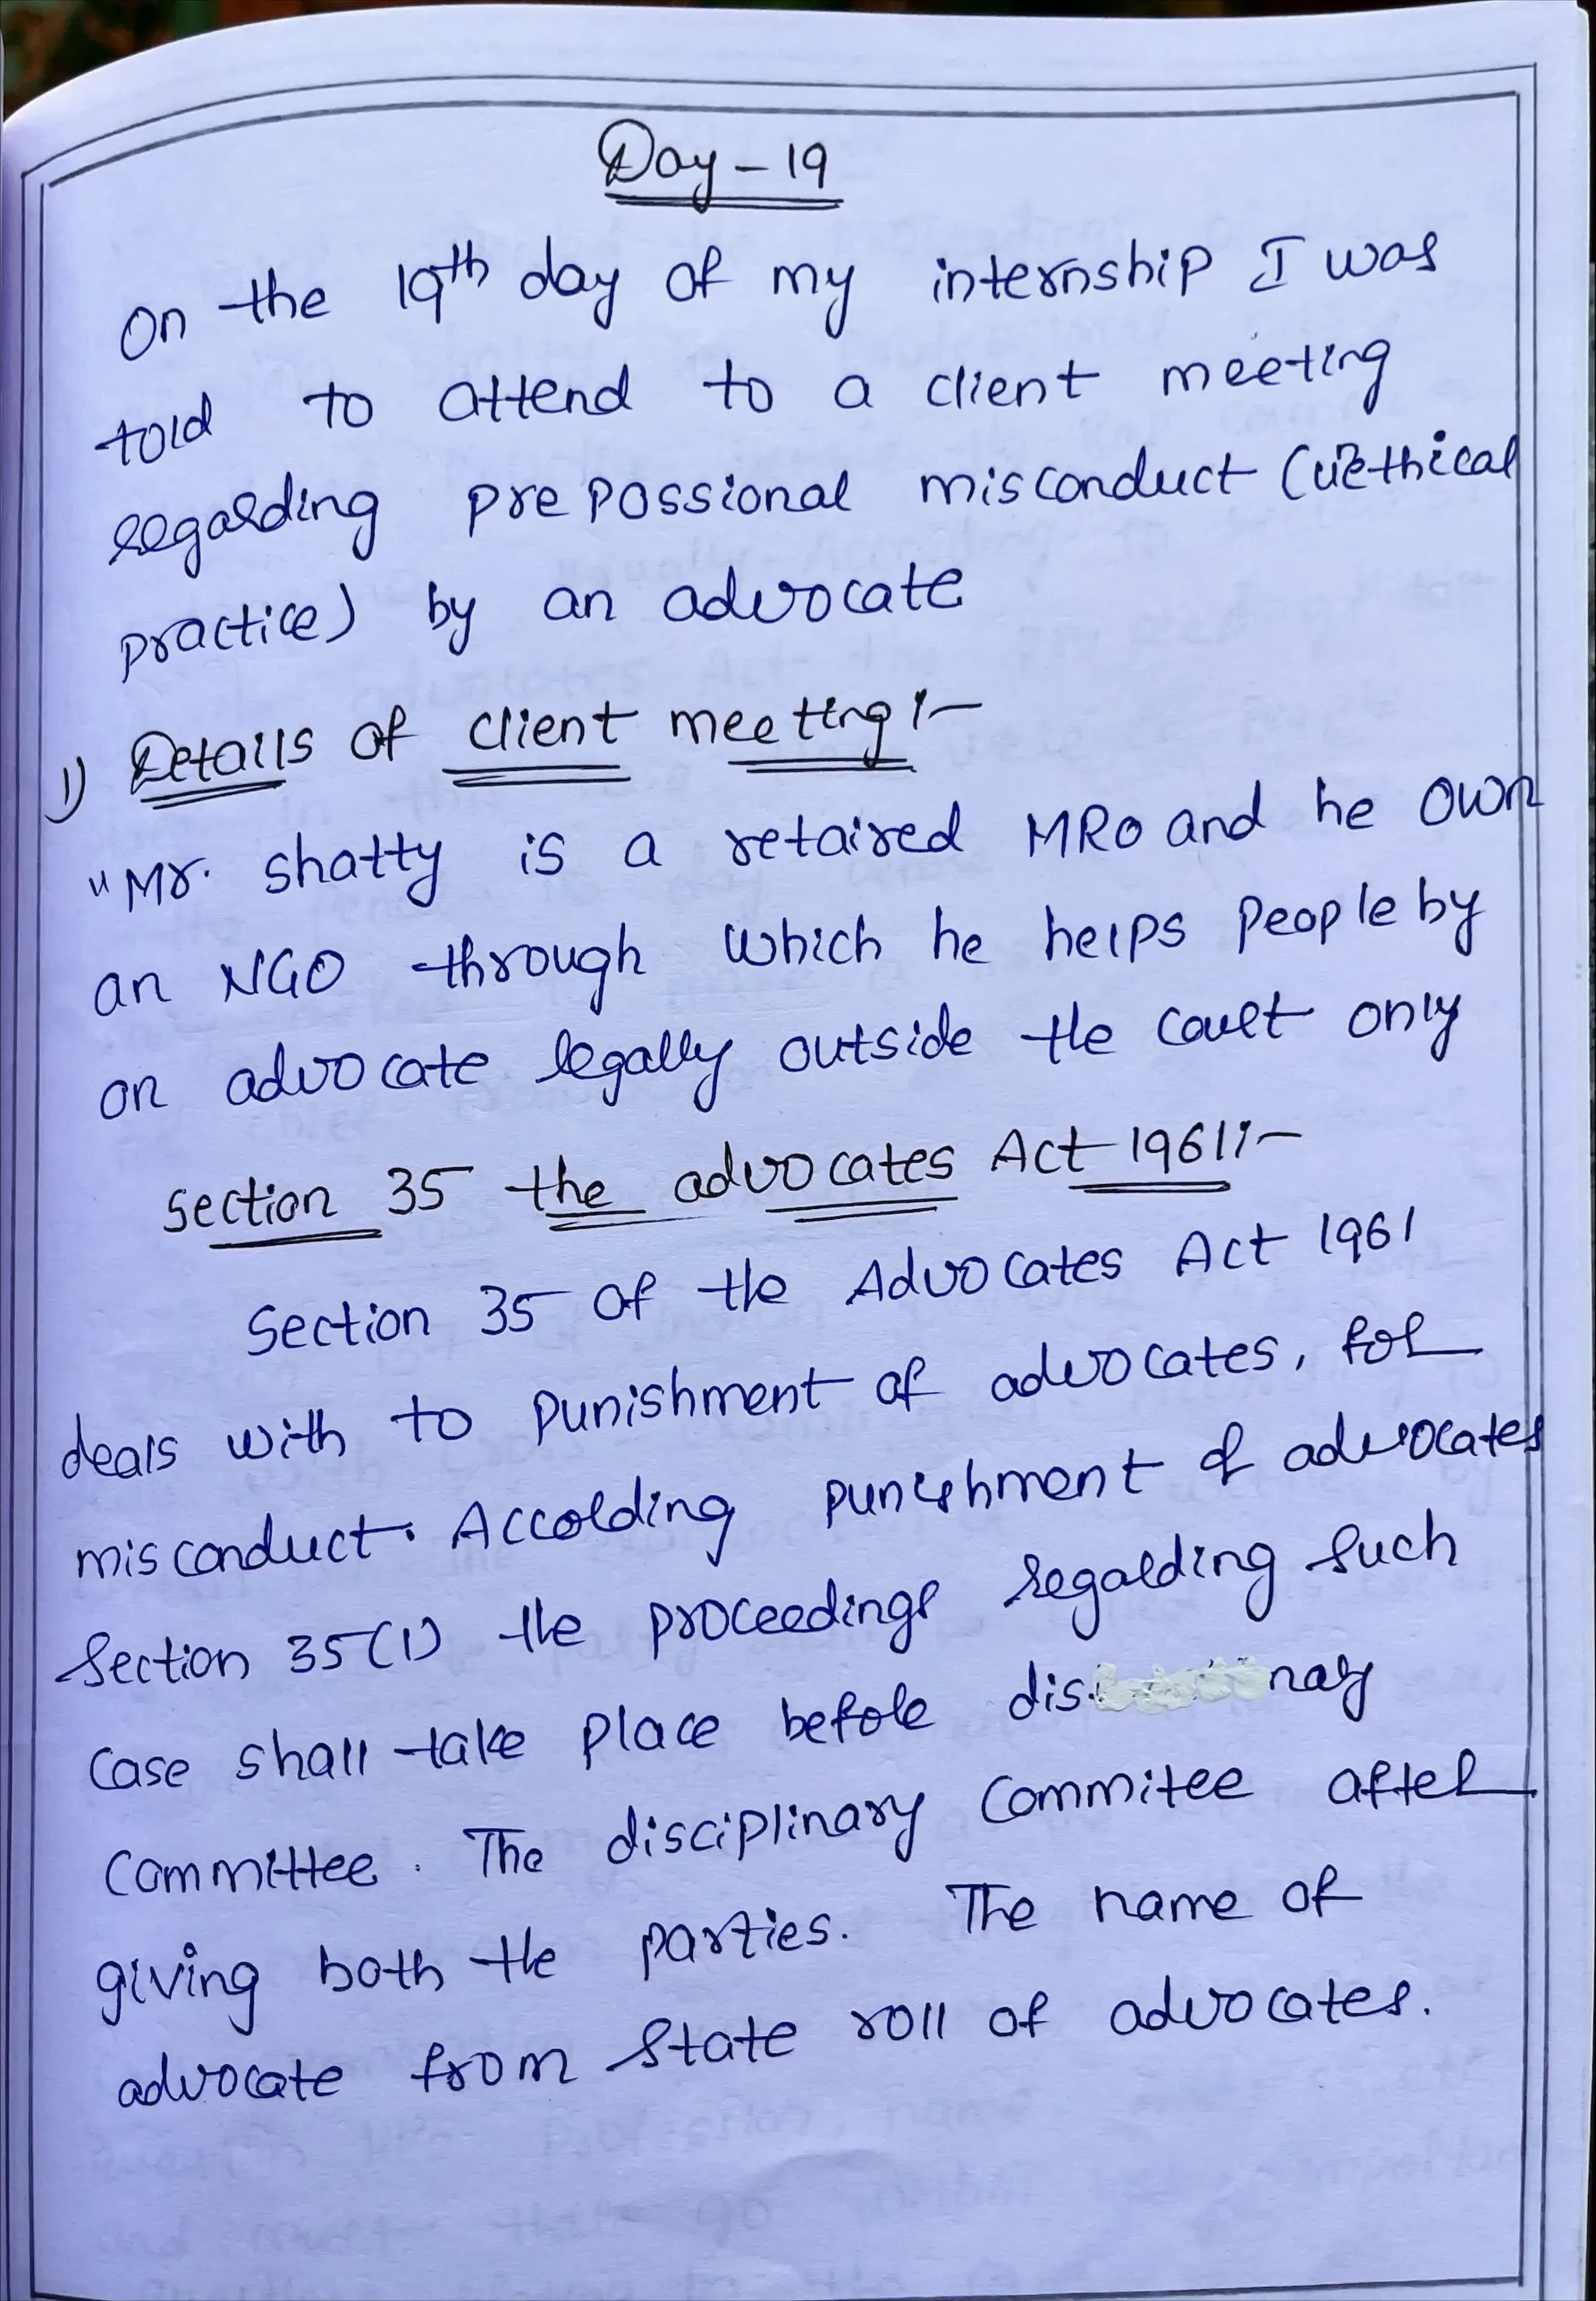 Day - 19
on the 19th day of my internship I was
told to attend to a client meeting
regarding prepossional misconduct (uethical
practice) by an advocate
1) Details of client meeting :-
"Mr. shatty is a retaired MRO and he own
an NGO through which he helps people by
on advocate legally outside the court only
section 35 the advocates Act 1961 :-
Section 35 of the Advocates Act 1961
deals with to punishment of advocates, for
misconduct. According punishment of advocates
Section 35(1) the proceedings regarding such
case shall take place before
committee. The disciplinary Commitee after
giving both the parties. The name of
advocate from State roll of advocates.